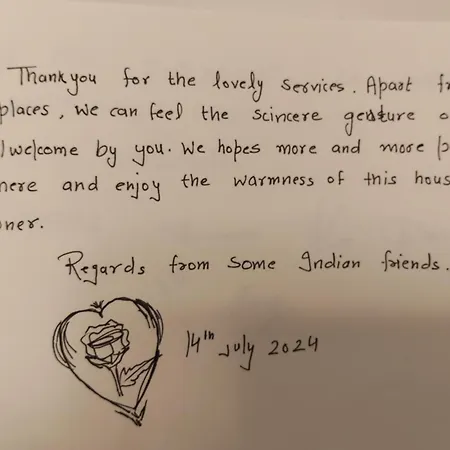 Thankyou for the lovely services. Apart fr
places, we can feel the scincere gesture o
welcome by you. We hopes more and more p
here and enjoy the warmness of this hous
oner.
Regards from some Indian friends.
14th July 2024